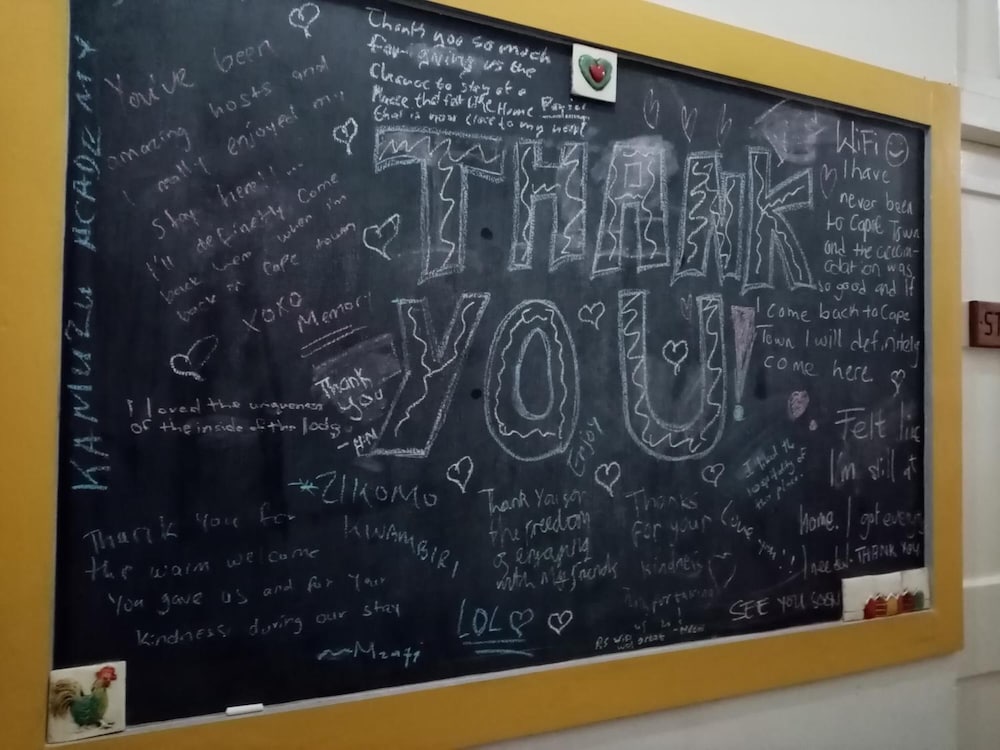 KAMUZU ACADEMY
You've been
amazing hosts and
I really enjoyed my
stay here!!...
I'll definetly come
back here when im
back in Cape town
XOXO
Memory
Thank you so much
for giving us the
chance to stay at a
Place that felt like Home
that is now close to my heart
THANK
YOU!
WiFi
I have
never been
to Cape Town
and the accom-
odation was
so good and if
I come back to Cape
Town I will definitely
come here.
Thank
You
-H.N
I loved the uniqueness
of the inside of the
Enjoy
Felt like
I'm still at
home. I got everything
I needed. THANK YOU
*ZIKOMO
KWAMBIRI
Thank you for
the warm welcome
You gave us and for your
kindness during our stay
~Mzati
Thank You for
the freedom
of enjoying
with my friends
LOL
Thanks
for your
kindness
Love you!!
hospitality of
SEE YOU SOON
PS wifi
was great